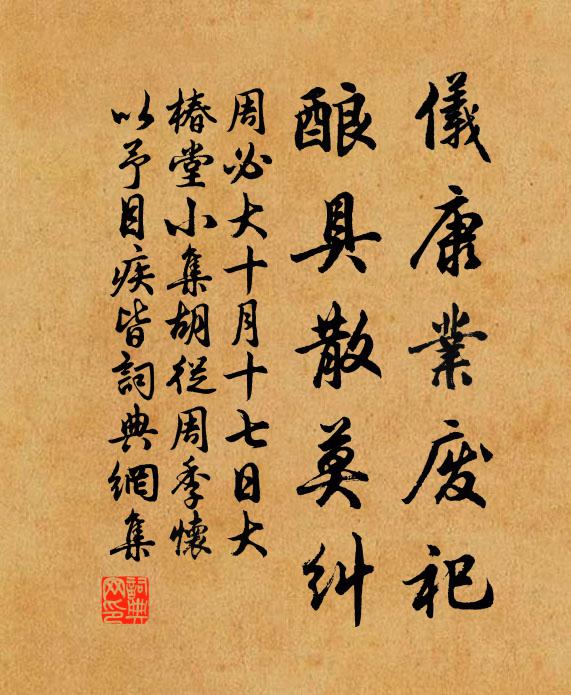 儀康業废祀
酿具散莫糾
周必大十月十七日大
椿堂小集胡從周季懷
以予目疾皆詞典網集
詞典網印